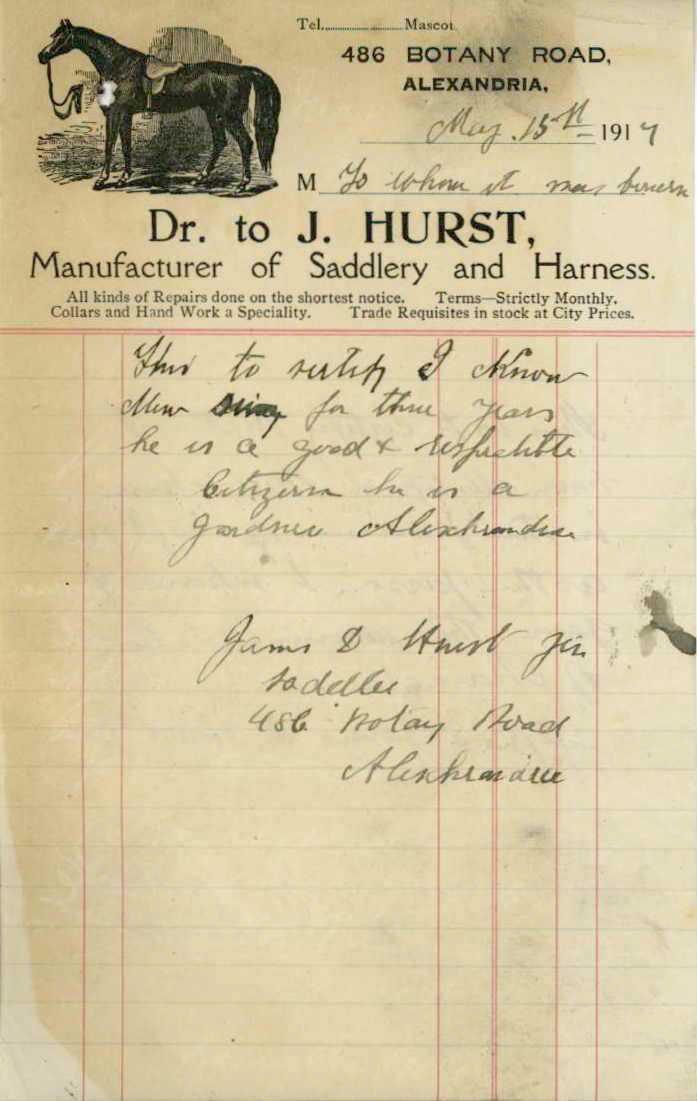 Tel. Mascot
486 BOTANY ROAD,
ALEXANDRIA,
May. 15th 1917
M To whom it may
Dr. to J. HURST,
Manufacturer of Saddlery and Harness.
All kinds of Repairs done on the shortest notice. Terms—Strictly Monthly.
Collars and Hand Work a Speciality. Trade Requisites in stock at City Prices.
This to certify I Know
for three years
he is a good & respectible
Citizern he is a
gardner
James D Hurst Jin
Sadeller
486 Botay Road